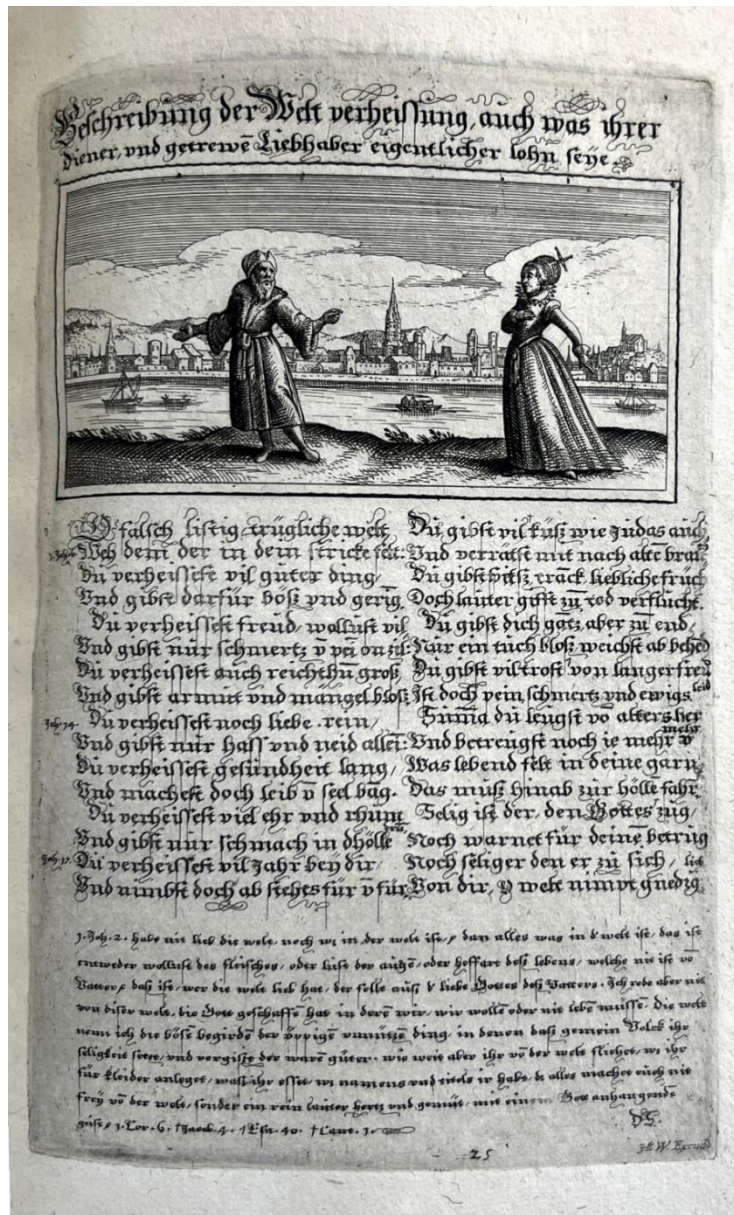 Beschreibung der Welt verheissung, auch was ihrer
diener, vnd getrewē Liebhaber eigentlicher lohn seye.
O falsch listig trügliche welt
Weh dem der in dein stricke felt:
Du verheissest vil guter ding,
Vnd gibst darfür böß vnd gerig.
Du verheissest freud, wollust vil
Vnd gibst nur schmertz v pein on zil:
Du verheissest auch reichthū groß,
Vnd gibst armut vnd mangel bloß
Joh. 14. Du verheissest noch liebe rein,
Vnd gibst nur hass vnd neid allei:
Du verheissest gesundheit lang,
Vnd machest doch leib v seel bāg.
Du verheissest viel ehr vnd rhum
Vnd gibst nur schmach in dhölle
Joh. 17. Du verheissest vil Jahr bey dir,
Vnd nimbst doch ab stehes für v für
Du gibst vil kuß wie Judas auch
Vnd verratst mit nach alte brauch
Du gibst speiß, tranck liebliche früc
Doch lauter gifft zū tod verflucht.
Du gibst dich gātz, aber zū end,
Nur ein tuch bloß, weichst ab behēd
Du gibst vil trost von langer freud
Ist doch pein schmertz vnd ewigs leid
Suma du leugst vō alters her
Vnd betreugst noch ie mehr v mehr
Was lebend felt in deine garn,
Das muß hinab zur hölle fahr
Selig ist der, den Gottes zug,
Noch warnet für deinē betrug
Noch seliger den er zū sich,
Von dir, o welt nimpt gnedig lich
1. Joh. 2. habt nit lieb die welt, noch wz in der welt ist, dan alles was in d welt ist, das ist
entweder wollust des fleisches, oder lust der augē, oder hoffart deß lebens, welche nit ist vō
Vatter, daß ist, wer die welt lieb hat, der felle auß d liebe Gottes deß Vatters. Ich rede aber nit
von diser welt, die Gott geschaffen hat in deren wir, wir wollē oder nit lebē müssen. Die welt
nenn ich die bösē begirden der üppigen vnnützen ding, in denen daß gemein Volck ihr
seligkeit setzt, vnd vergißt der warē güter. wie weit aber ihr vō der welt fliehet, wz ihr
für kleider anleget, waß ihr esset, wz namens vnd titels ir habt, dz alles machet euch nit
frey vō der welt, sonder ein rein lauter hertz vnd gemüt, mit einem Gott anhangende
geist, 1. Cor. 6. Jacob. 4. Esa. 40. Cant. 1.
DS.
25
W. Excud